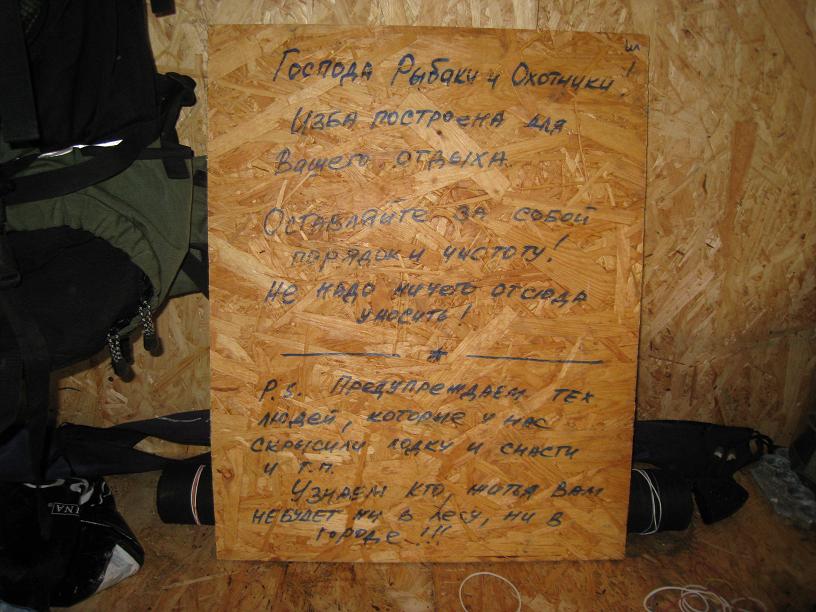 Господа Рыбаки и Охотники!
Изба построена для
Вашего отдыха
Оставляйте за собой
порядок и чистоту!
Не надо ничего отсюда
уносить!
*
P.S. Предупреждаем тех
людей, которые у нас
скрысили лодку и снасти
и т.п.
Узнаем кто, житья вам
небудет ни в лесу, ни в
городе!!!